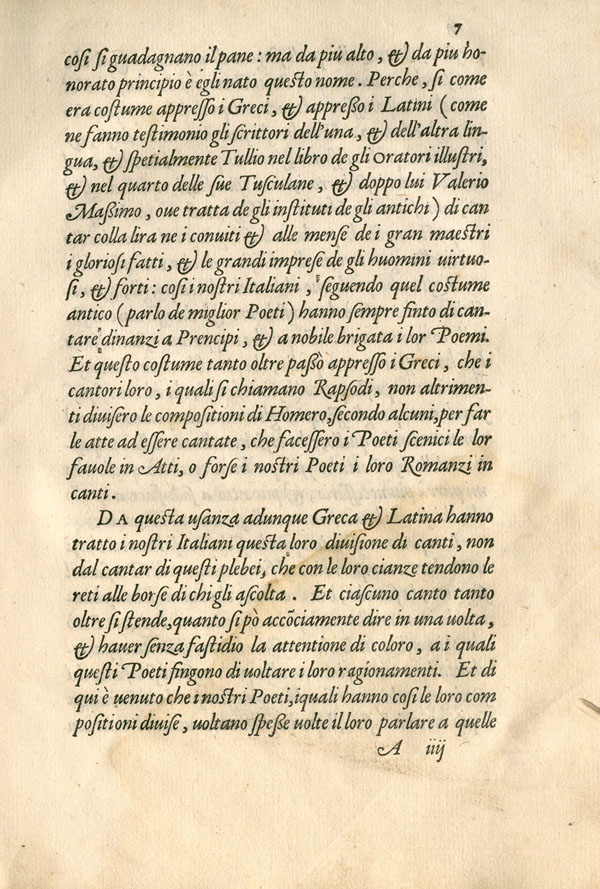 7
cosi si guadagnano il pane : ma da piu alto , & da piu ho-
norato principio è egli nato questo nome . Perche , si come
era costume appresso i Greci , & appreßo i Latini ( come
ne fanno testimonio gli scrittori dell'una , & dell'altra lin-
gua , & spetialmente Tullio nel libro de gli oratori illustri,
& nel quarto delle sue Tusculane , & doppo lui Valerio
Maßimo , oue tratta de gli instituti de gli antichi ) di can
tar colla lira ne i conuiti & alle mense de i gran maestri
i gloriosi fatti , & le grandi imprese de gli huomini uirtuo-
si , & forti : cosi i nostri Italiani , seguendo quel costume
antico ( parlo de miglior Poeti ) hanno sempre finto di can-
tare dinanzi a Prencipi , & a nobile brigata i lor Poemi.
Et questo costume tanto oltre paßò appresso i Greci , che i
cantori loro , i quali si chiamano Rapsodi , non altrimen-
ti diuisero le compositioni di Homero, secondo alcuni, per far
le atte ad essere cantate , che facessero i Poeti scenici le lor
fauole in Atti , o forse i nostri Poeti i loro Romanzi in
canti .
DA questa usanza adunque Greca & Latina hanno
tratto i nostri Italiani questa loro diuisione di canti , non
dal cantar di questi plebei, che con le loro cianze tendono le
reti alle borse di chi gli ascolta . Et ciascuno canto tanto
oltre si stende, quanto si pò accõciamente dire in una uolta ,
& hauer senza fastidio la attentione di coloro , a i quali
questi Poeti fingono di uoltare i loro ragionamenti. Et di
qui è uenuto che i nostri Poeti, iquali hanno cosi le loro com
positioni diuise , uoltano speße uolte il loro parlare a quelle
A iiij